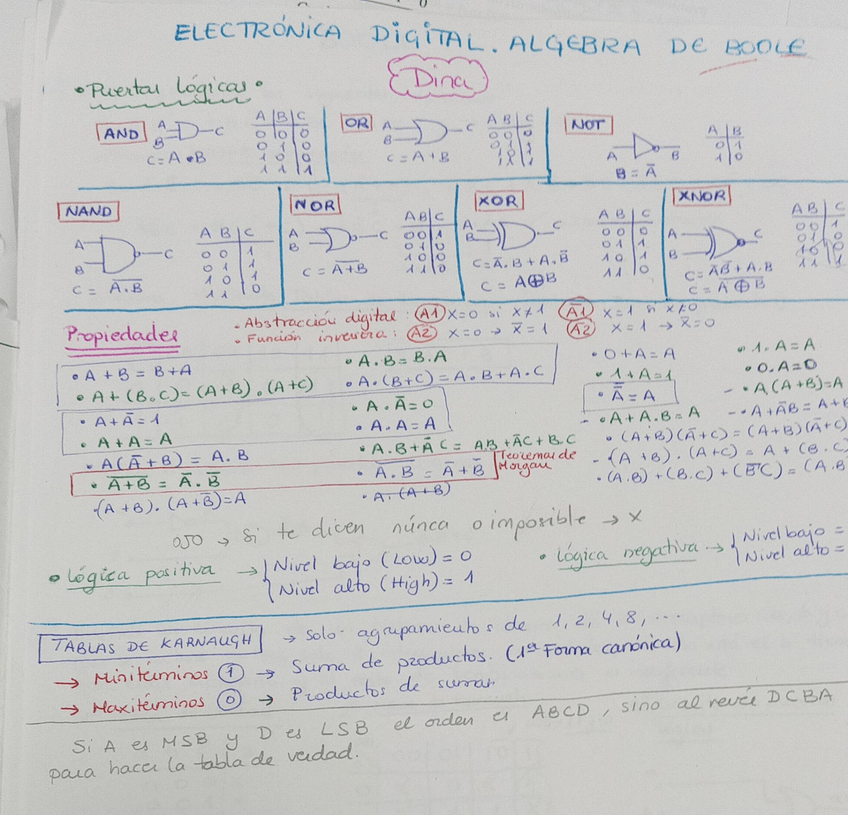 ELECTRÓNICA DIGITAL. ALGEBRA DE BOOLE
Dina
• Puertas lógicas •
AND
A
B
C
C = A • B
A B C
0 0 0
0 1 0
1 0 0
1 1 1
OR
A
B
C
C = A + B
A B C
0 0 0
0 1 1
1 0 1
1 1 1
NOT
A
B
B = A̅
A B
0 1
1 0
NAND
A
B
C
C = \overline{A.B}
A B C
0 0 1
0 1 1
1 0 1
1 1 0
NOR
A
B
C
C = \overline{A+B}
A B C
0 0 1
0 1 0
1 0 0
1 1 0
XOR
A
B
C
C = A̅.B + A.B̅
C = A⊕B
A B C
0 0 0
0 1 1
1 0 1
1 1 0
XNOR
A
B
C
C = A̅B̅ + A.B
C = \overline{A ⊕ B}
A B C
0 0 1
0 1 0
1 0 0
1 1 1
Propiedades
• Abstracción digital: (A1) X=0 si X≠1 (A̅1̅) X=1 si X≠0
• Función inversora: (A2) X=0 → X̅=1 (A̅2̅) X=1 → X̅=0
• A + B = B + A
• A.B = B.A
• 0 + A = A
• 1.A = A
• A + (B.C) = (A+B).(A+C)
• A.(B+C) = A.B + A.C
• 1 + A = 1
• 0.A = 0
• A + A̅ = 1
• A.A̅ = 0
• A̿ = A
- • A(A+B) = A
• A + A = A
• A.A = A
- • A + A.B = A
- • A + A̅B = A + B
• A(A̅ + B) = A.B
• A.B + A̅C = AB + A̅C + B.C
• (A+B)(A̅+C) = (A+B)(A̅+C)
• \overline{A+B} = A̅.B̅
• \overline{A.B} = A̅ + B̅
Teoremas de Morgan
- (A+B).(A+C) = A + (B.C)
• (A+B).(A+B̅) = A
• A.(A+B)
• (A.B) + (B.C) + (B̅C) = (A.B
ojo → si te dicen núnca o imposible → X
• Lógica positiva → { Nivel bajo (Low) = 0
Nivel alto (High) = 1
• Lógica negativa → { Nivel bajo =
Nivel alto =
TABLAS DE KARNAUGH → solo agrupamientos de 1, 2, 4, 8, ...
→ Minitérminos (1) → Suma de productos. (1ª Forma canónica)
→ Maxitérminos (0) → Productos de sumas.
Si A es MSB y D es LSB el orden es ABCD, sino al revés DCBA
para hacer la tabla de verdad.